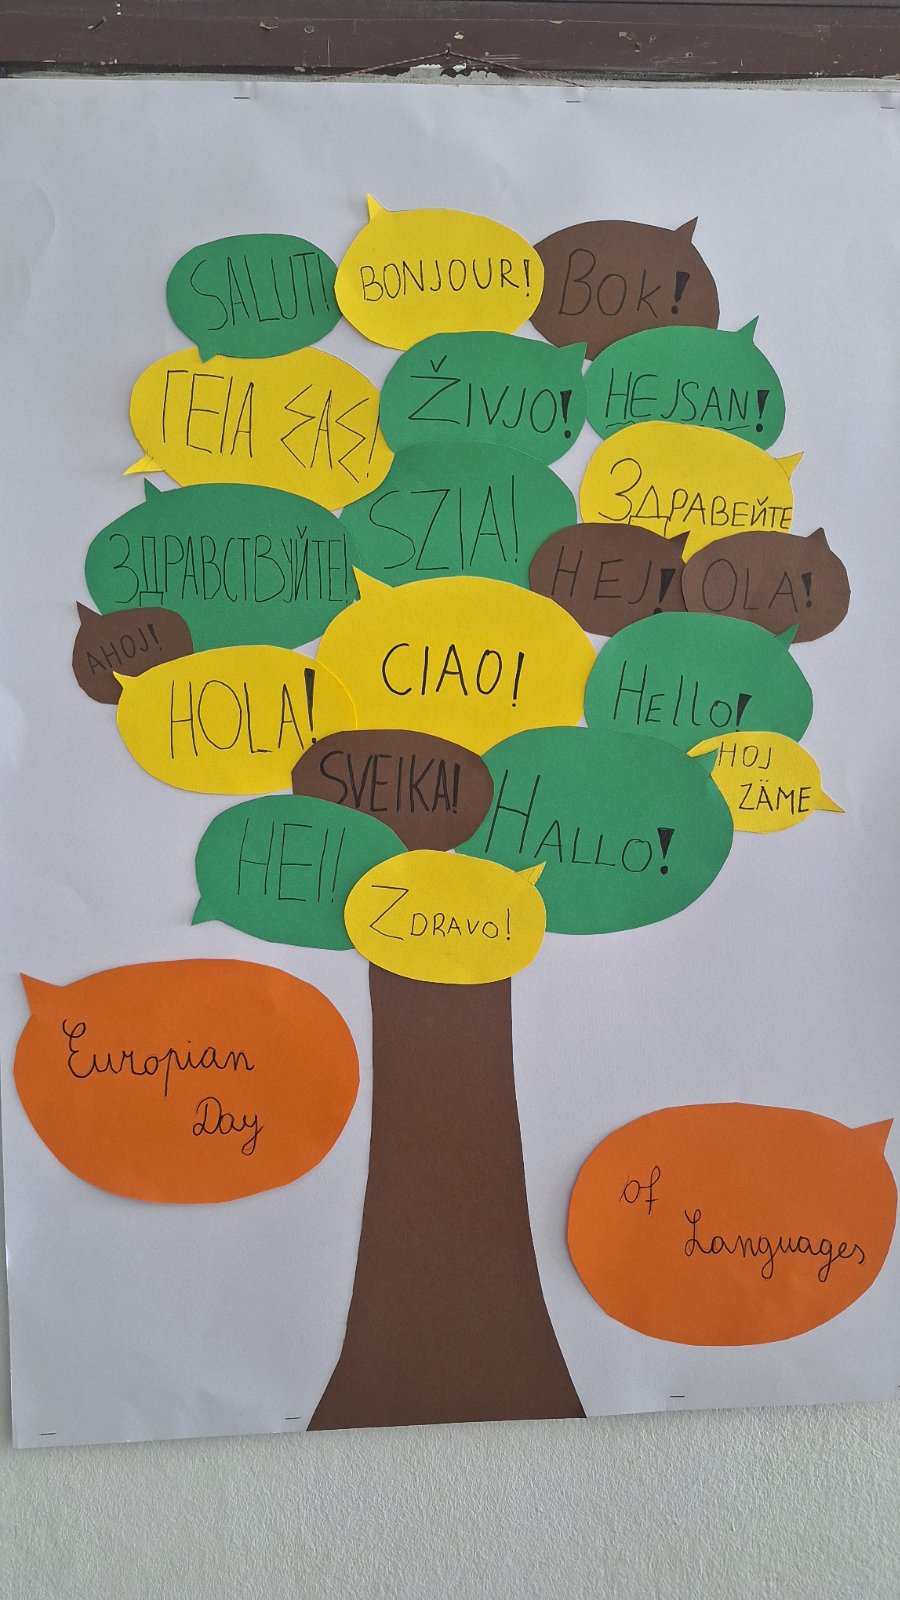 SALUT!
BONJOUR!
BOK!
ΓΕΙΑ ΣΑΣ!
ŽIVJO!
HEJSAN!
SZIA!
ЗДРАВЕЙТЕ
ЗДРАВСТВУЙТЕ!
HEJ!
OLA!
AHOJ!
CIAO!
HOLA!
Hello!
SVEIKA!
HALLO!
HOJ
ZÄME
HEI!
ZDRAVO!
Europian
Day
of
Languages